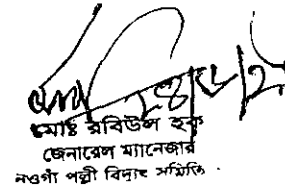 মোঃ রবিউল হক
জেনারেল ম্যানেজার
নওগাঁ পল্লী বিদ্যুৎ সমিতি।